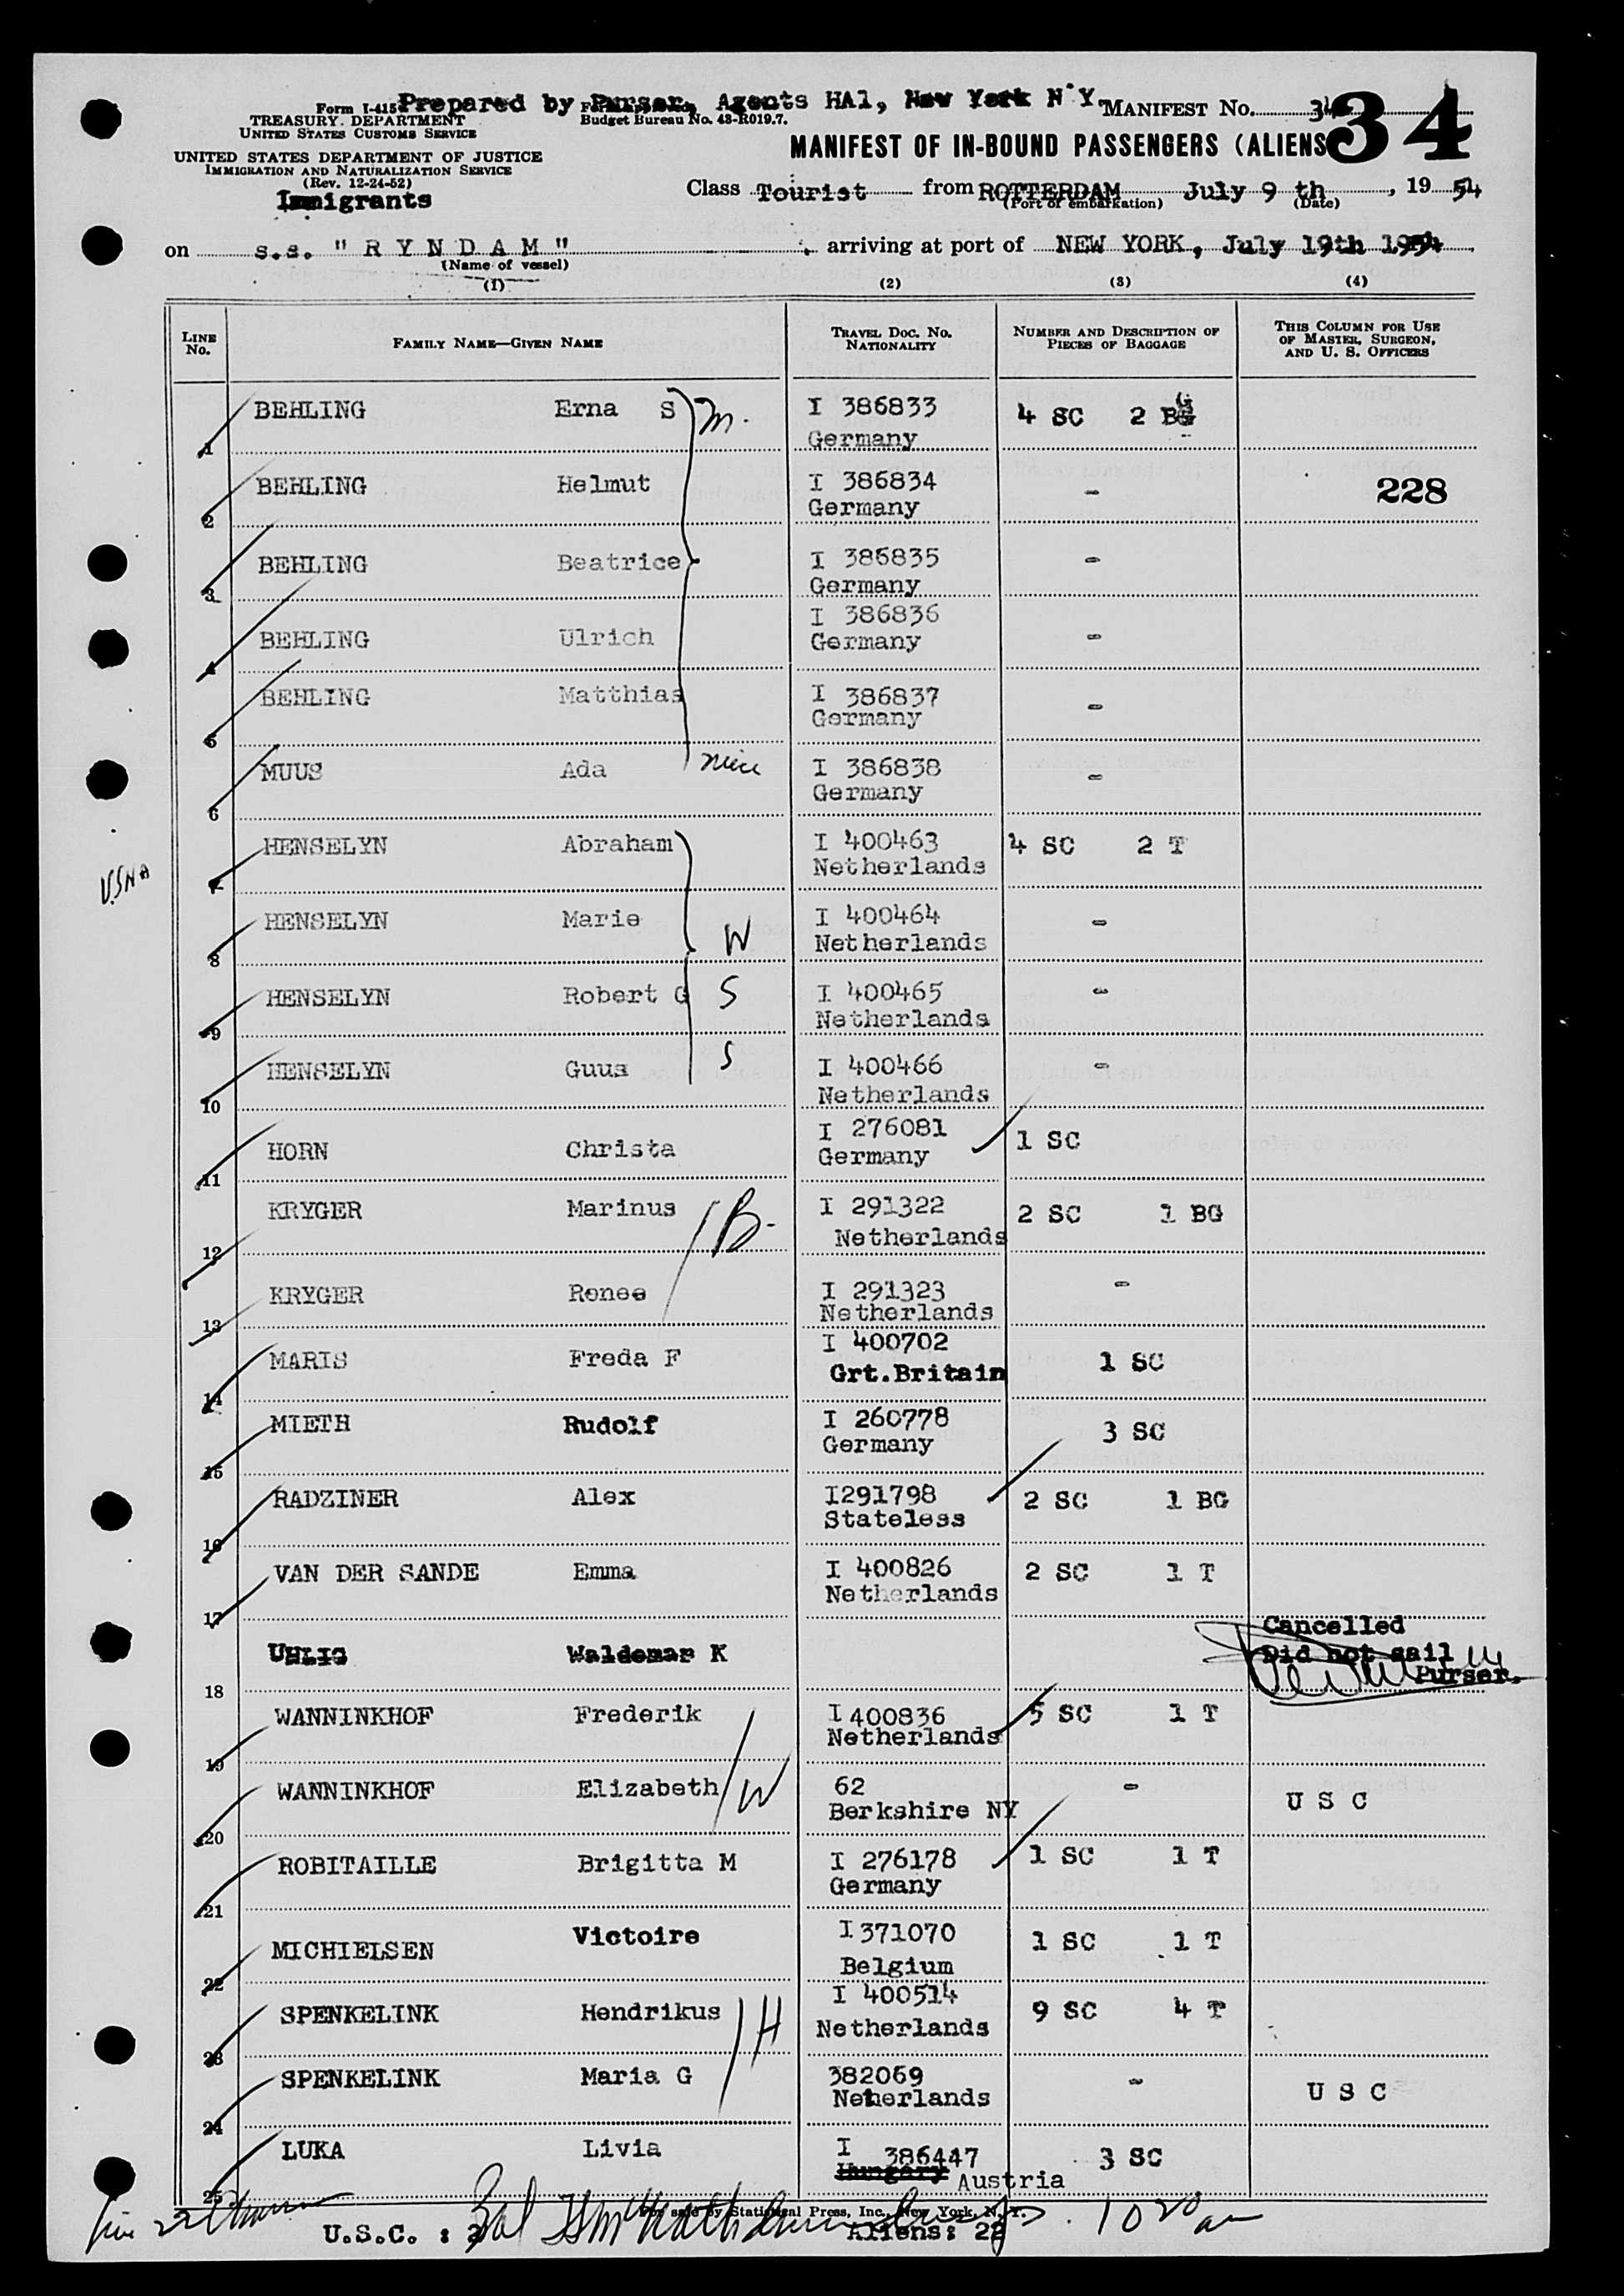 Form I-415 Prepared by Purser, Agents HAl, New York N Y. MANIFEST No. 34 34
TREASURY DEPARTMENT Budget Bureau No. 43-R019.7.
UNITED STATES CUSTOMS SERVICE
MANIFEST OF IN-BOUND PASSENGERS (ALIENS
UNITED STATES DEPARTMENT OF JUSTICE
IMMIGRATION AND NATURALIZATION SERVICE
(Rev. 12-24-52)
Immigrants
Class Tourist from ROTTERDAM July 9 th, 19 54
(Port of embarkation) (Date)
on s.s. " R Y N D A M " arriving at port of NEW YORK, July 19th 1954
(Name of vessel)
(1) (2) (3) (4)
LINE No. FAMILY NAME—GIVEN NAME TRAVEL DOC. NO. NATIONALITY NUMBER AND DESCRIPTION OF PIECES OF BAGGAGE THIS COLUMN FOR USE OF MASTER, SURGEON, AND U. S. OFFICERS
BEHLING Erna S m. I 386833 4 SC 2 BG
1 Germany
BEHLING Helmut I 386834 - 228
2 Germany
BEHLING Beatrice I 386835 -
3 Germany
BEHLING Ulrich I 386836 -
4 Germany
BEHLING Matthias I 386837 -
5 Germany
MUUS Ada niece I 386838 -
6 Germany
HENSELYN Abraham I 400463 4 SC 2 T
USNA 7 Netherlands
HENSELYN Marie W I 400464 -
8 Netherlands
HENSELYN Robert G S I 400465 -
9 Netherlands
HENSELYN Guus S I 400466 -
10 Netherlands
HORN Christa I 276081 1 SC
11 Germany
KRYGER Marinus B- I 291322 2 SC 1 BG
12 Netherlands
KRYGER Renee I 291323 -
13 Netherlands
MARIS Freda F I 400702 1 SC
14 Grt.Britain
MIETH Rudolf I 260778 3 SC
15 Germany
RADZINER Alex I291798 2 SC 1 BG
16 Stateless
VAN DER SANDE Emma I 400826 2 SC 1 T
17 Netherlands
Cancelled
UHLIG Waldemar K Did not sail
18 Purser.
WANNINKHOF Frederik I 400836 5 SC 1 T
19 Netherlands
WANNINKHOF Elizabeth W 62 - U S C
20 Berkshire NY
ROBITAILLE Brigitta M I 276178 1 SC 1 T
21 Germany
MICHIELSEN Victoire I 371070 1 SC 1 T
22 Belgium
SPENKELINK Hendrikus H I 400514 9 SC 4 T
23 Netherlands
SPENKELINK Maria G 382069 - U S C
24 Netherlands
LUKA Livia I 386447 3 SC
25 Hungary Austria
For sale by Stational Press, Inc., New York, N. Y.
U.S.C. : 2 Aliens: 22 10 20 am